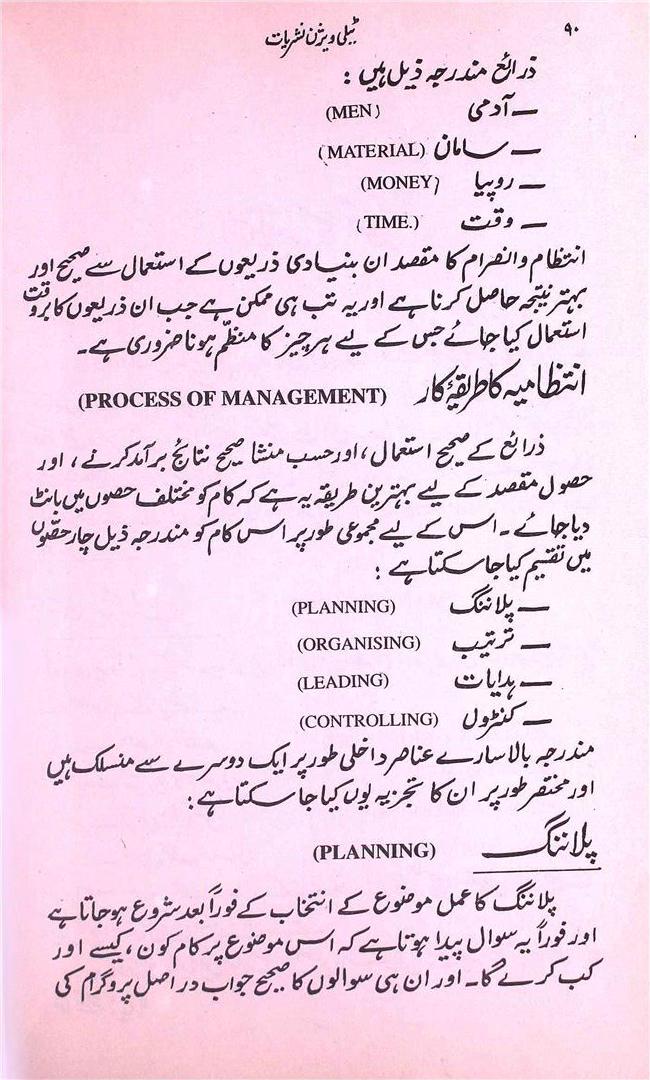 ۹۰
ٹیلی ویژن نشریات
ذرائع مندرجہ ذیل ہیں :
— آدمی (MEN)
— سامان (MATERIAL)
— روپیا (MONEY)
— وقت (TIME.)
انتظام وانصرام کا مقصد ان بنیادی ذریعوں کے استعمال سے صحیح اور
بہتر نتیجہ حاصل کرنا ہے اور یہ تب ہی ممکن ہے جب ان ذریعوں کا بروقت
استعمال کیا جائے جس کے لیے ہر چیز کا منظّم ہونا ضروری ہے۔
انتظامیہ کا طریقۂ کار (PROCESS OF MANAGEMENT)
ذرائع کے صحیح استعمال ، اور حسب منشا صحیح نتائج برآمد کرنے ، اور
حصول مقصد کے لیے بہترین طریقہ یہ ہے کہ کام کو مختلف حصوں میں بانٹ
دیا جائے ۔ اس کے لیے مجموعی طور پر اس کام کو مندرجہ ذیل چار حصّوں
میں تقسیم کیا جا سکتا ہے :
— پلاننگ (PLANNING)
— ترتیب (ORGANISING)
— ہدایات (LEADING)
— کنٹرول (CONTROLLING)
مندرجہ بالا سارے عناصر داخلی طور پر ایک دوسرے سے منسلک ہیں
اور مختصر طور پر ان کا تجزیہ یوں کیا جا سکتا ہے :
پلاننگ (PLANNING)
پلاننگ کا عمل موضوع کے انتخاب کے فوراً بعد شروع ہو جاتا ہے
اور فوراً یہ سوال پیدا ہوتا ہے کہ اس موضوع پر کام کون ، کیسے اور
کب کرے گا ۔ اور ان ہی سوالوں کا صحیح جواب در اصل پروگرام کی